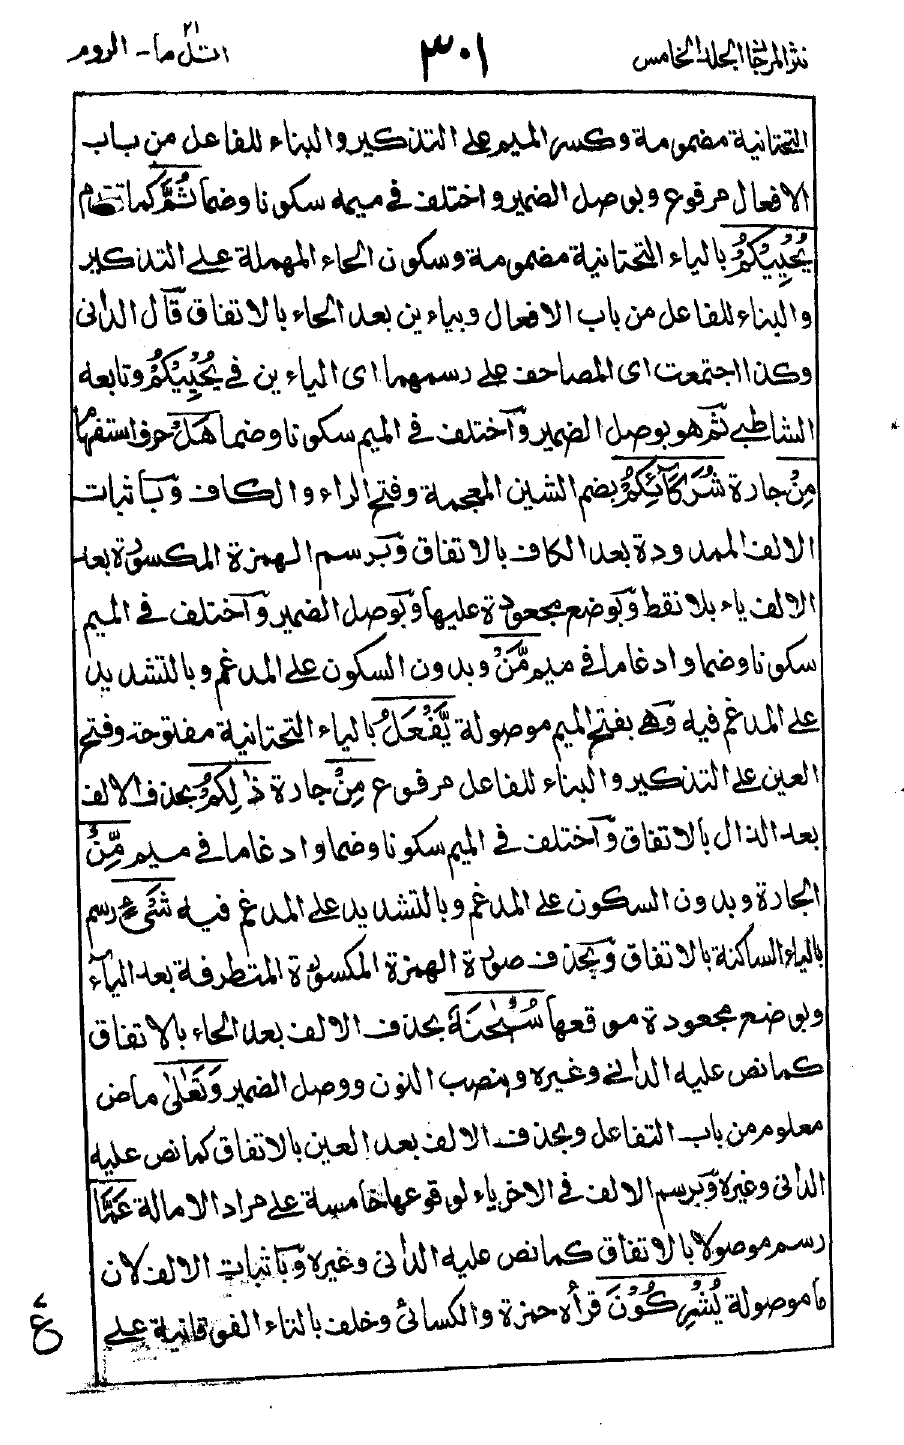 نثر المرجان الجلد الخامس
٣٠١
اتل ما ٢١ - الروم
التحتانية مضمومة وكسر الميم على التذكير والبناء للفاعل من باب
الافعال مرفوع وبوصل الضمير واختلف في ميمه سكونا وضما ثُمَّ كما تقدم
يُحْيِيْكُمْ بالياء التحتانية مضمومة وسكون الحاء المهملة على التذكير
والبناء للفاعل من باب الافعال وبياءين بعد الحاء بالاتفاق قال الدانى
وكذا اجتمعت اى المصاحف على رسمهما اى الياءين في يُحْيِيْكُمْ وتابعه
الشاطبي ثم هو بوصل الضمير واختلف في الميم سكونا وضما هَلْ حرف استفهام
مِنْ جارة شُرَكَآئِكُمْ بضم الشين المعجمة وفتح الراء والكاف وباثبات
الالف الممدودة بعد الكاف بالاتفاق وبرسم الهمزة المكسورة بعد
الالف ياء بلا نقط وبوضع مجعودة عليها وبوصل الضمير واختلف في الميم
سكونا وضما وادغاما في ميم مَّنْ وبدون السكون على المدغم وبالتشديد
على المدغم فيه وهى بفتح الميم موصولة يَّفْعَلُ بالياء التحتانية مفتوحة وفتح
العين على التذكير والبناء للفاعل مرفوع مِنْ جارة ذٰلِكُمْ بحذف الالف
بعد الذال بالاتفاق واختلف في الميم سكونا وضما وادغاما في ميم مِّنْ
الجارة وبدون السكون على المدغم وبالتشديد على المدغم فيه شَىْءٍ رسم
بالياء الساكنة بالاتفاق وبحذف صورة الهمزة المكسورة المتطرفة بعد الياء
وبوضع مجعودة موقعها سُبْحٰنَهٗ بحذف الالف بعد الحاء بالاتفاق
كما نص عليه الدانى وغيره وبنصب النون ووصل الضمير وَتَعٰلٰى ماض
معلوم من باب التفاعل وبحذف الالف بعد العين بالاتفاق كما نص عليه
الدانى وغيره وبرسم الالف في الاخر ياء لوقوعها خامسة على مراد الامالة عَمَّا
رسم موصولا بالاتفاق كما نص عليه الدانى وغيره وباثبات الالف لان
ما موصولة يُشْرِكُوْنَ قرأه حمزة والكسائى وخلف بالتاء الفوقانية على
ع